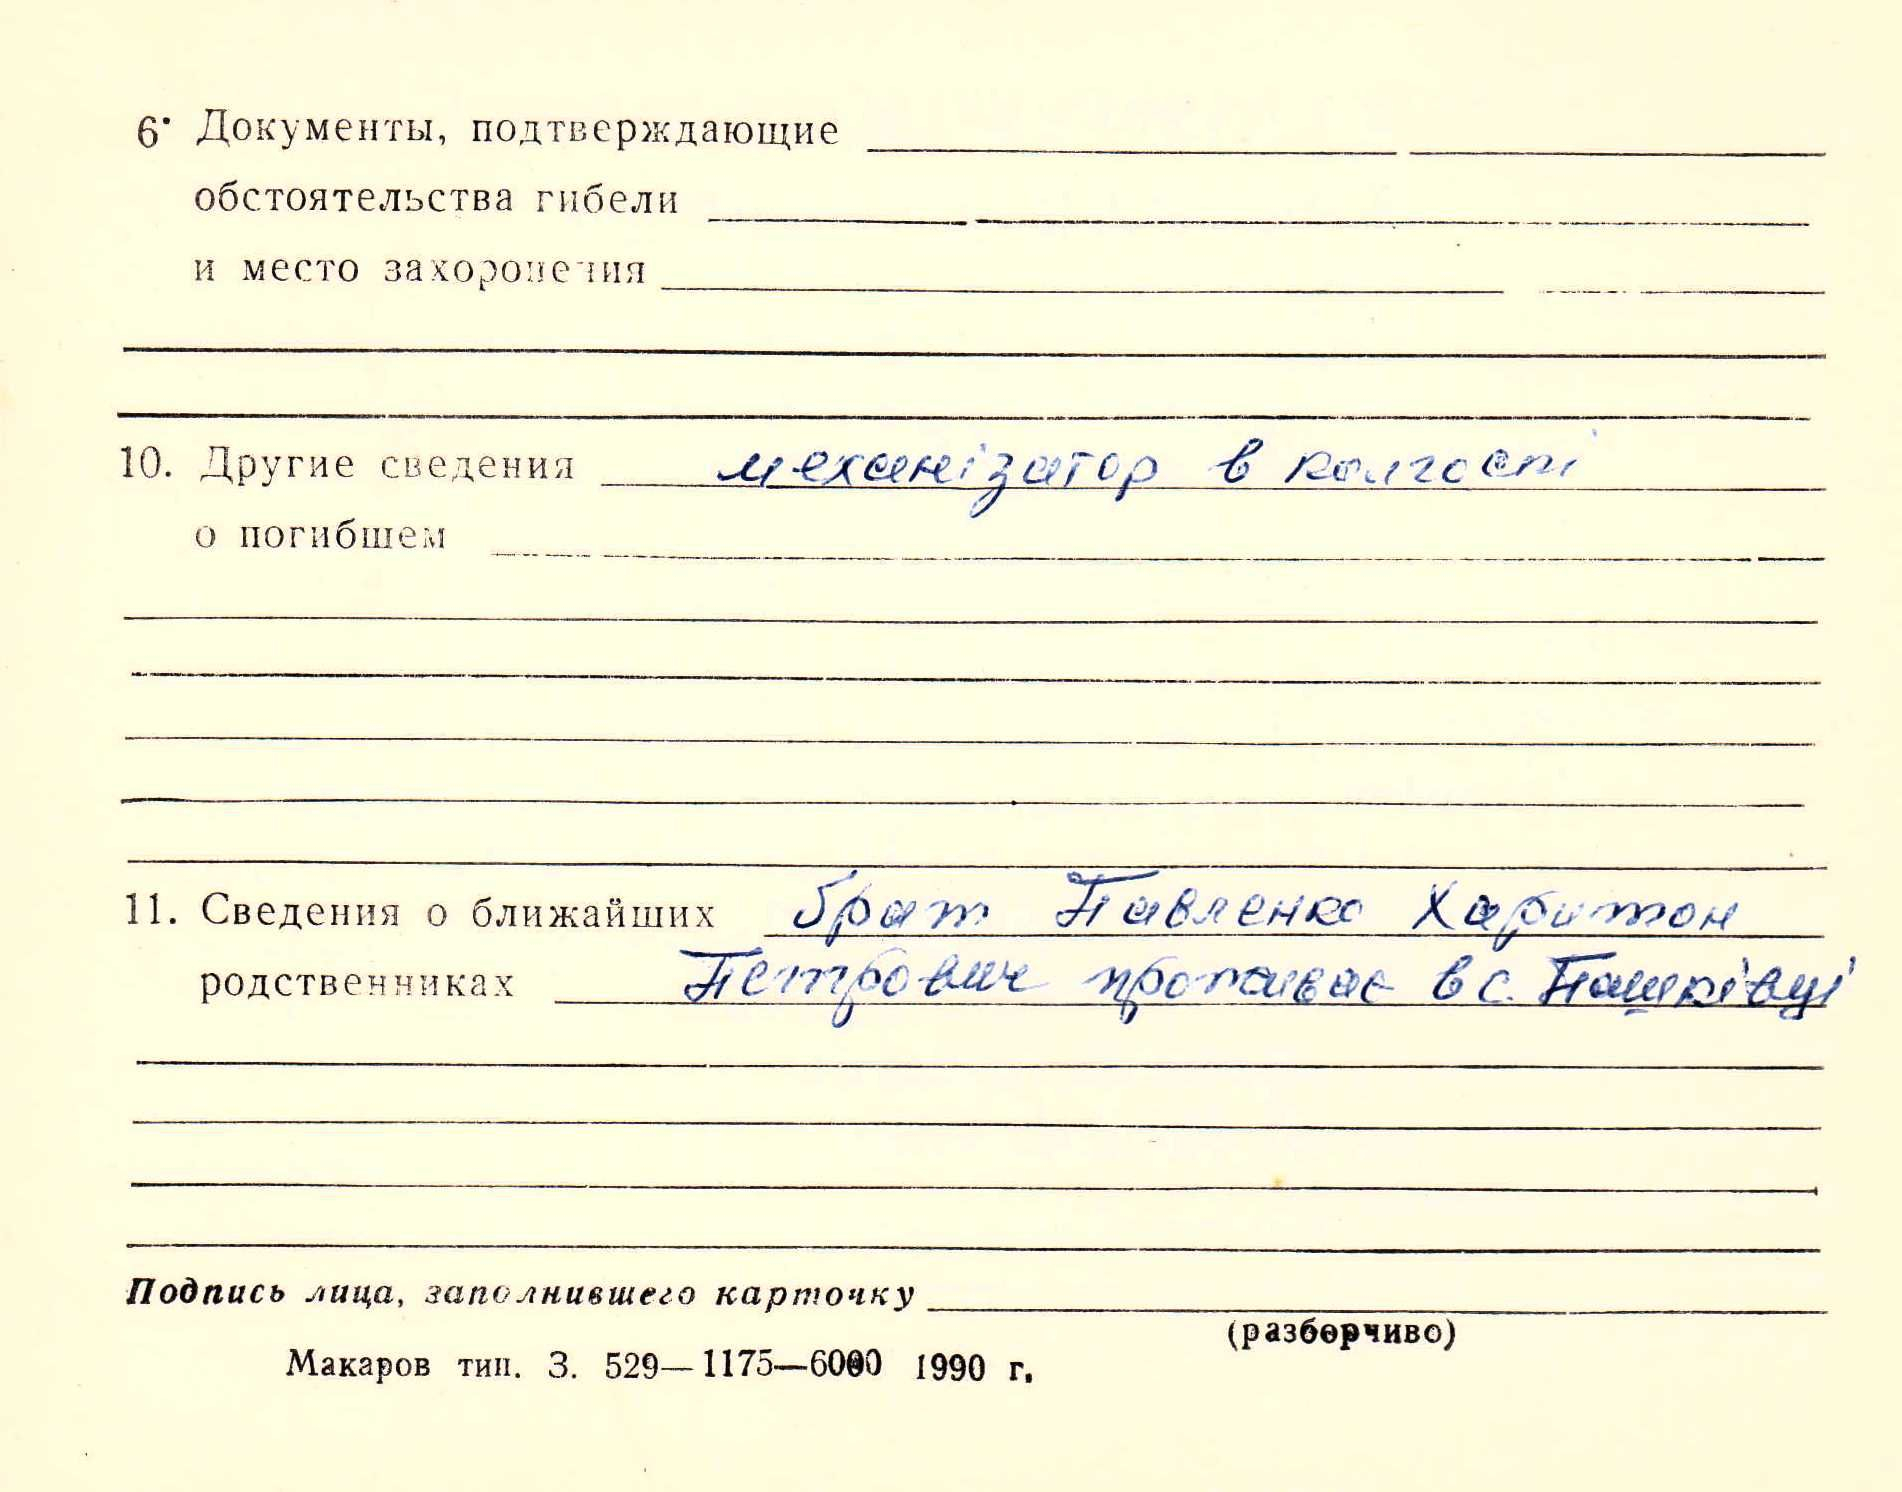 6. Документы, подтверждающие
обстоятельства гибели
и место захоронения
10. Другие сведения механізатор в колгоспі
о погибшем
11. Сведения о ближайших брат Павленко Харитон
родственниках Петрович проживає в с. Пашківці
Подпись лица, заполнившего карточку
(разборчиво)
Макаров тип. З. 529—1175—6000 1990 г.